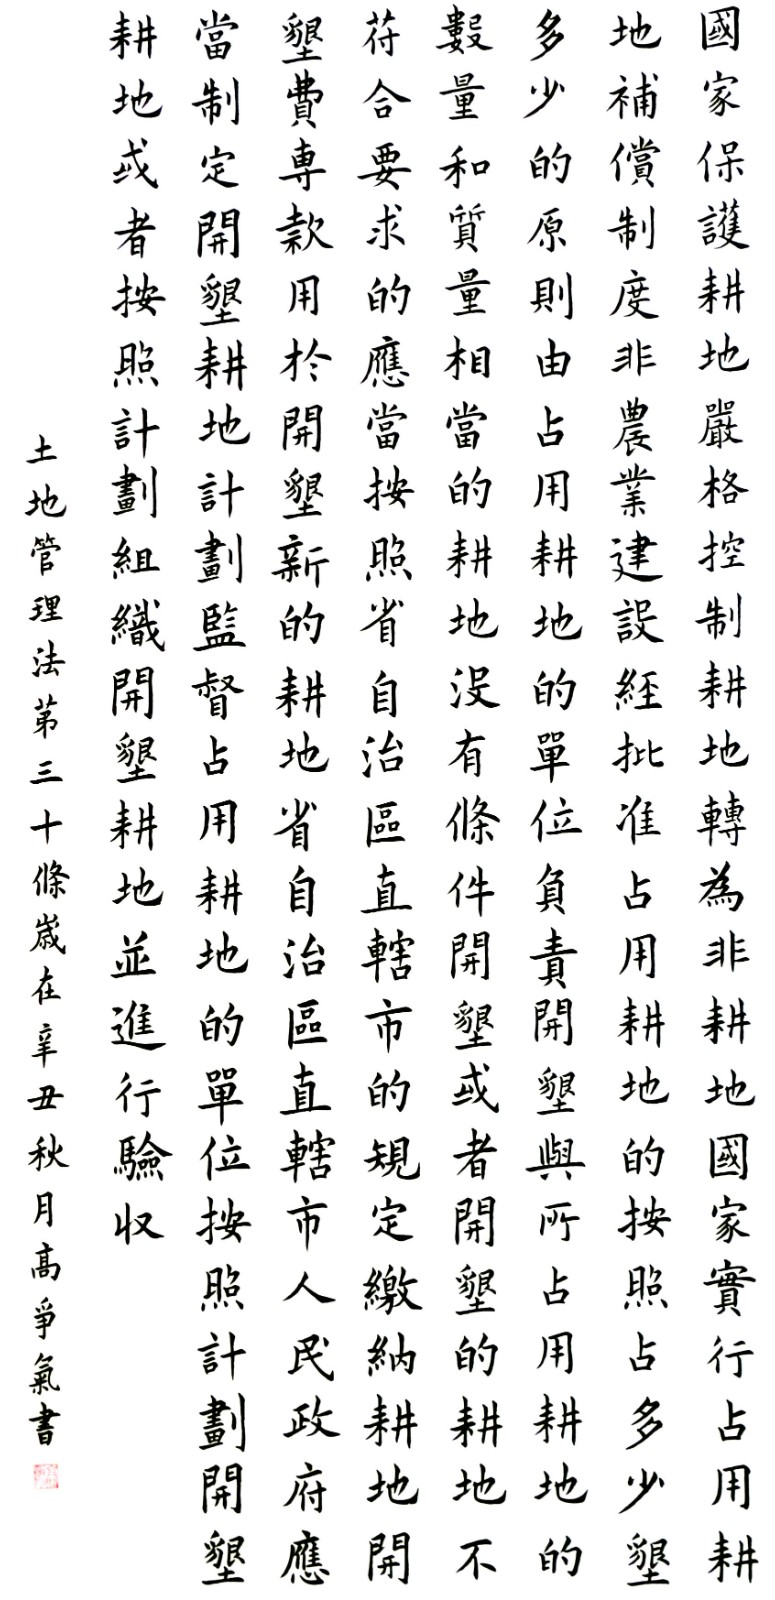 國家保護耕地嚴格控制耕地轉為非耕地國家實行占用耕
地補償制度非農業建設經批准占用耕地的按照占多少墾
多少的原則由占用耕地的單位負責開墾與所占用耕地的
數量和質量相當的耕地沒有條件開墾或者開墾的耕地不
苻合要求的應當按照省自治區直轄市的規定繳納耕地開
墾費專款用於開墾新的耕地省自治區直轄市人民政府應
當制定開墾耕地計劃監督占用耕地的單位按照計劃開墾
耕地或者按照計劃組織開墾耕地並進行驗収
土地管理法苐三十條歲在辛丑秋月高爭氣書